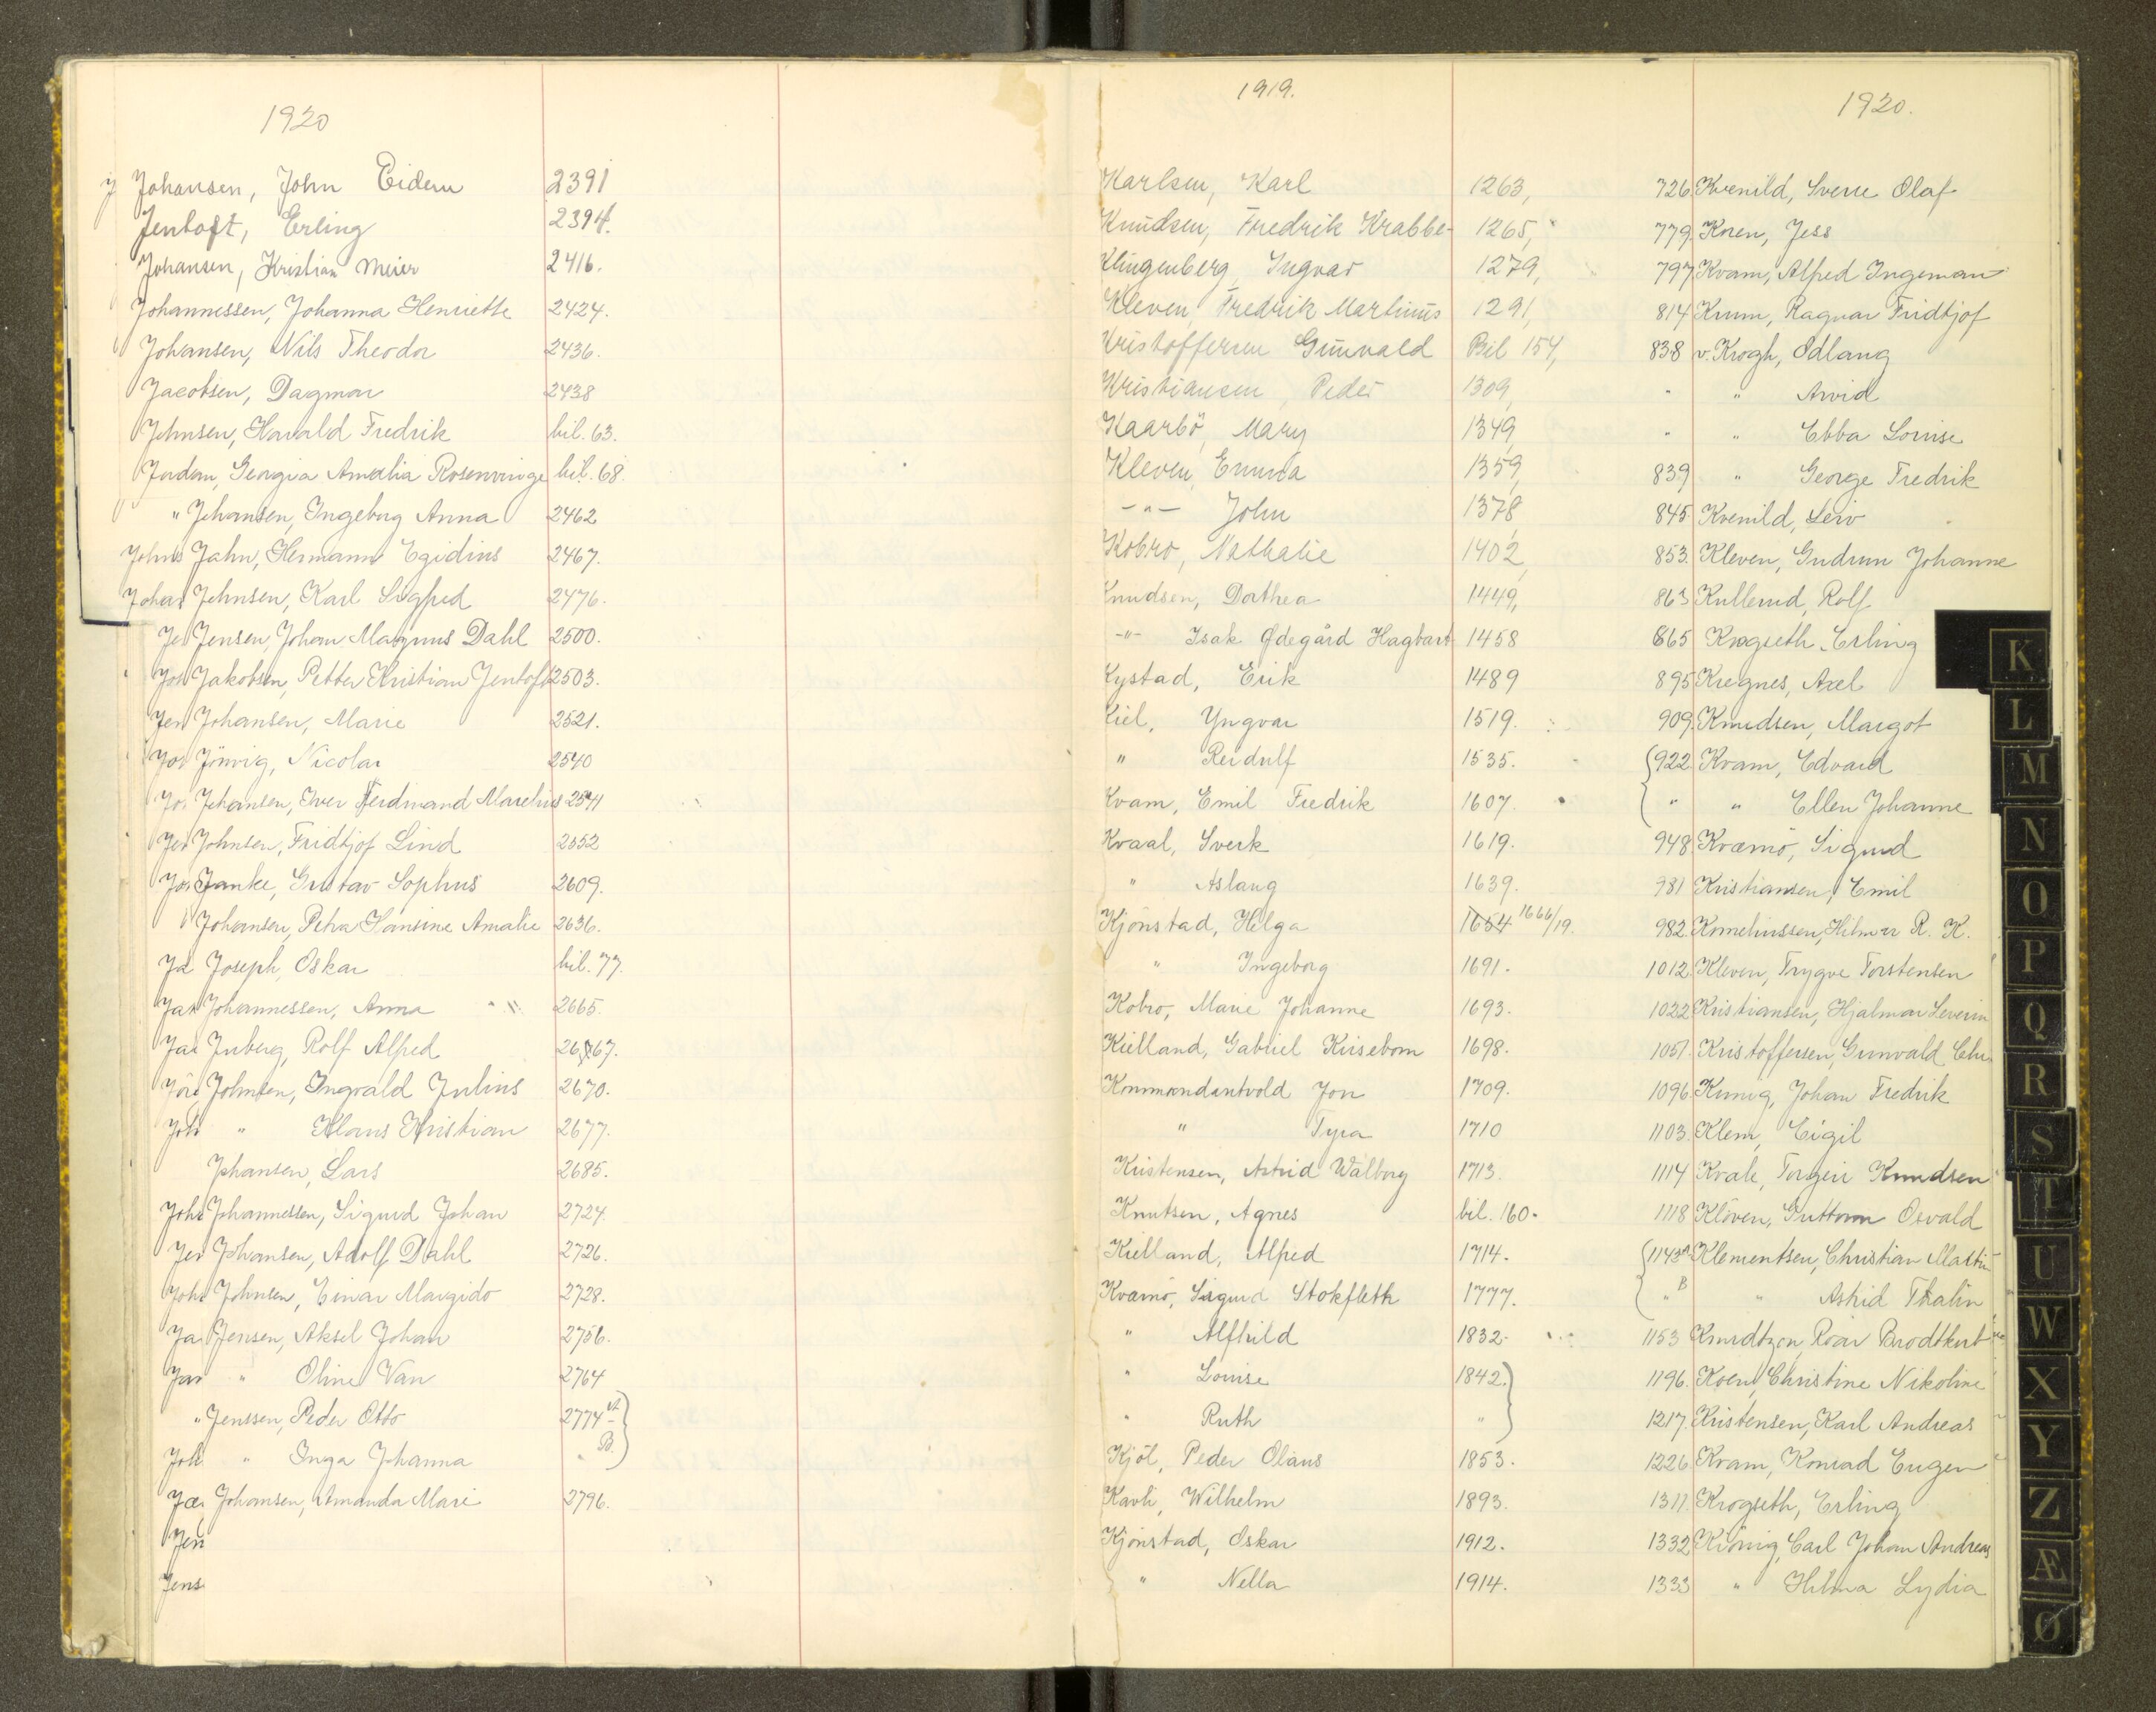 1920
Johansen, John Eidem 2391
Jentoft, Erling 2394.
Johansen, Kristian Meier 2416.
Johannessen, Johanna Henriette 2424.
Johansen, Nils Theodor 2436.
Jacobsen, Dagmar 2438
Johnsen, Harald Fredrik bil. 63.
Jordan, Georgia Amalia Rosenvinge bil. 68.
" Johansen, Ingeborg Anna 2462
Jahn, Hermann Egidius 2467.
Johnsen, Karl Sigfred 2476.
Jensen, Johan Magnus Dahl 2500.
Jakobsen, Petter Kristian Jentoft 2503.
Johansen, Marie 2521.
Jönvig, Nicolai 2540
Johansen, Iver Ferdinand Marelius 2541
Johnsen, Fridtjof Lind 2552
Janke, Gustav Sophus 2609.
Johansen, Petra Hansine Amalie 2636.
Joseph, Oskar bil. 77.
Johannessen, Anna 2665.
Juberg, Rolf Alfred 2667.
Johnsen, Ingvald Julius 2670.
" Klaus Kristian 2677.
Johansen, Lars 2685.
Johannessen, Sigurd Johan 2724.
Johansen, Adolf Dahl 2726.
Johnsen, Einar Margido 2728.
Jensen, Aksel Johan 2756.
" Oline Van 2764
" Jenssen, Peder Otto 2774 A
" Inga Johanna " B.
Johansen, Amanda Marie 2796.
1919.
Karlsen, Karl 1263,
Knudsen, Fredrik Krabbe- 1265,
Klingenberg, Ingvar 1279,
Kleven, Fredrik Martinus 1291,
Kristoffersen Gunvald Bil 154,
Kristiansen, Peder 1309,
Kaarbö, Mary 1349,
Kleven, Emma 1359,
-"- John 1378,
Kobro, Nathalie 1402,
Knudsen, Dorthea 1449,
-"- Isak Ødegård Hagbart 1458
Kystad, Erik 1489
Kiel, Yngvar 1519.
" Reidulf 1535.
Kvam, Emil Fredrik 1607.
Kvaal, Sverk 1619.
" Aslaug 1639.
Kjönstad, Helga 1654 1666/19.
" Ingeborg 1691.
Kobro, Marie Johanne 1693.
Kielland, Gabriel Kirsebom 1698.
Kommandantvold Jon 1709.
" Tyra 1710
Kristensen, Astrid Walborg 1713.
Knutsen, Agnes bil. 160.
Kielland, Alfred 1714.
Kvamö, Sigurd Stokfleth 1777.
" Alfhild 1832.
" Louise 1842.
" Ruth "
Kjöl, Peder Olaus 1853.
Kavli, Wilhelm 1893.
Kjönstad, Oskar 1912.
" Nella 1914.
1920.
726. Kvenild, Sverre Olaf
779. Knen, Jess
797. Kvam, Alfred Ingeman
814 Krum, Ragnar Fridtjof
838 v. Krogh, Odlaug
" " Arvid
" " Ebba Louise
839 " George Fredrik
845. Kvenild, Leiv
853. Kleven, Gudrun Johanne
863 Kullerud, Rolf
865 Krogseth, Erling
895 Kregnes, Axel
909. Knudsen, Margot
922. Kvam, Edvard
" " Ellen Johanne
948 Kvamö, Sigurd
981 Kristiansen, Emil
982. Korneliussen, Hilmar R. K.
1012. Kleven, Trygve Torstensen
1022 Kristiansen, Hjalmar Severin
1051. Kristoffersen, Gunvald Chr.
1096. König, Johan Fredrik
1103. Klem, Eigil
1114 Kvale, Torgeir Knudsen
1118 Klöven, Guttorm Osvald
1143 A Klementsen, Christian Martin
" B " Astrid Thalin
1153 Knudtzon, Roar Brodtkorb
1196. Koen, Christine Nikoline
1217. Kristensen, Karl Andreas
1226. Kvam, Konrad Eugen
1311. Krogseth, Erling
1332 Kiönig, Carl Johan Andreas
1333 " Hilma Lydia
K
L
M
N
O
P
Q
R
S
T
U
W
X
Y
Z
Æ
Ø